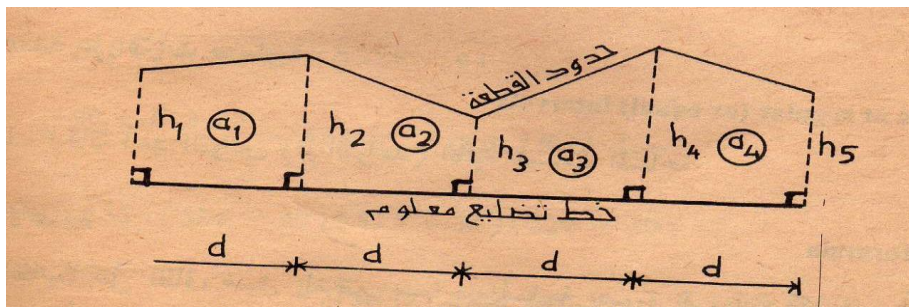 حدود القطعة
h1 a1 h2 a2 h3 a3 h4 a4 h5
خط تضليع معلوم
d d d d